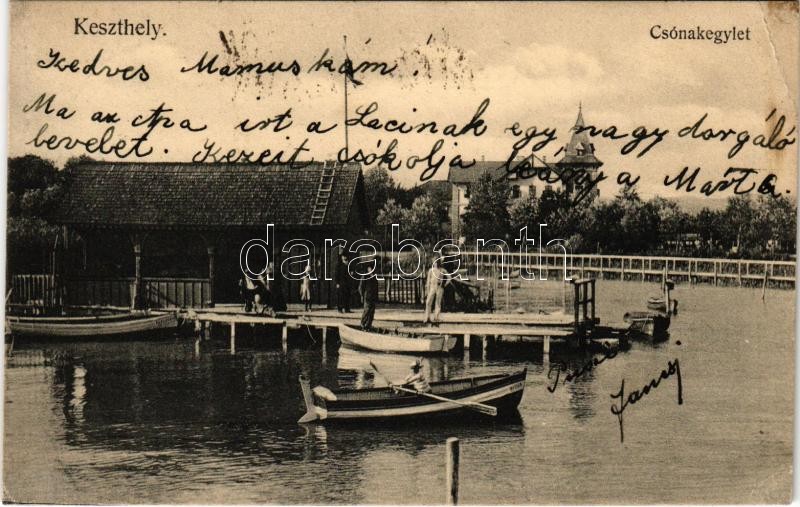 Keszthely.
Csónakegylet
Kedves Mamuskám!
Ma az Apa irt a Lacinak egy nagy dorgáló
bevelet. Kezeit csókolja leánya Márta.
darabanth
Pussi
Jancsi